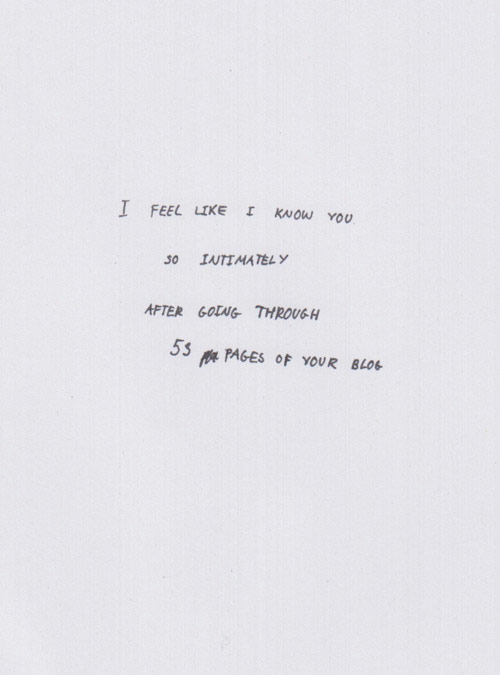 I FEEL LIKE I KNOW YOU
SO INTIMATELY
AFTER GOING THROUGH
53 PAGES OF YOUR BLOG